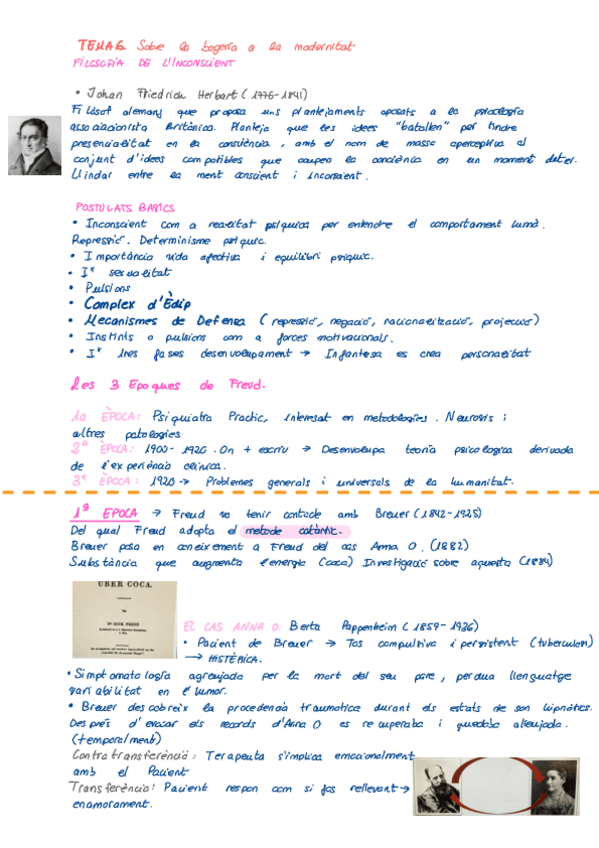 TEMA 6. Sobre la bogeria a la modernitat
FILOSOFIA DE L'INCONSCIENT
• Johan Friedrich Herbart (1776-1841)
Filòsof alemany que proposa uns plantejaments oposats a la psicologia
associacionista Britànica. Planteja que les idees "batallen" per tindre
presencialitat en la consciència, amb el nom de massa aperceptiva al
conjunt d'idees compatibles que ocupen la conciència en un moment deter.
Llindar entre la ment conscient i inconscient.
POSTULATS BASICS
• Inconscient com a realitat psíquica per entendre el comportament humà.
Repressió. Determinisme psíquic.
• Importància vida afectiva i equilibri psíquic.
• Iª sexualitat
• Pulsions
• Complex d'Èdip
• Mecanismes de Defensa (repressió, negació, racionalització, projecció)
• Instints o pulsions com a forces motivacionals.
• Iª tres fases desenvolupament → Infantesa es crea personalitat
Les 3 Epoques de Freud.
1a ÈPOCA: Psiquiatra Practic, interesat en metodologies. Neurosis i
altres patologies
2ª ÈPOCA: 1900-1920. On + escriu → Desenvolupa teoria psicologica derivada
de l'experiència clínica.
3ª ÈPOCA: 1920 → Problemes generals i universals de la humanitat.
1ª EPOCA → Freud va tenir contacte amb Breuer (1842-1925)
Del qual Freud adopta el metode catàrtic.
Breuer posa en coneixement a Freud del cas Anna O. (1882)
Substància que augmenta l'energia (coca) Investigació sobre aquesta (1884)
ÜBER COCA.
EL CAS ANNA O. Berta Pappenheim (1859-1936)
• Pacient de Breuer → Tos compulsiva i persistent (tuberculosi)
→ HISTÈRICA.
• Simptomatologia agreujada per la mort del seu pare, perdua llenguatge
variabilitat en l'humor.
• Breuer descobreix la procedencia traumatica durant els estats de son hipnòtics.
Després d'evocar els records d'Anna O es recuperaba i quedaba alleujada.
(temporalment)
Contratransferència: Terapeuta s'implica emocionalment
amb el Pacient
Transferència: Pacient respon com si fos rellevant →
enamorament.